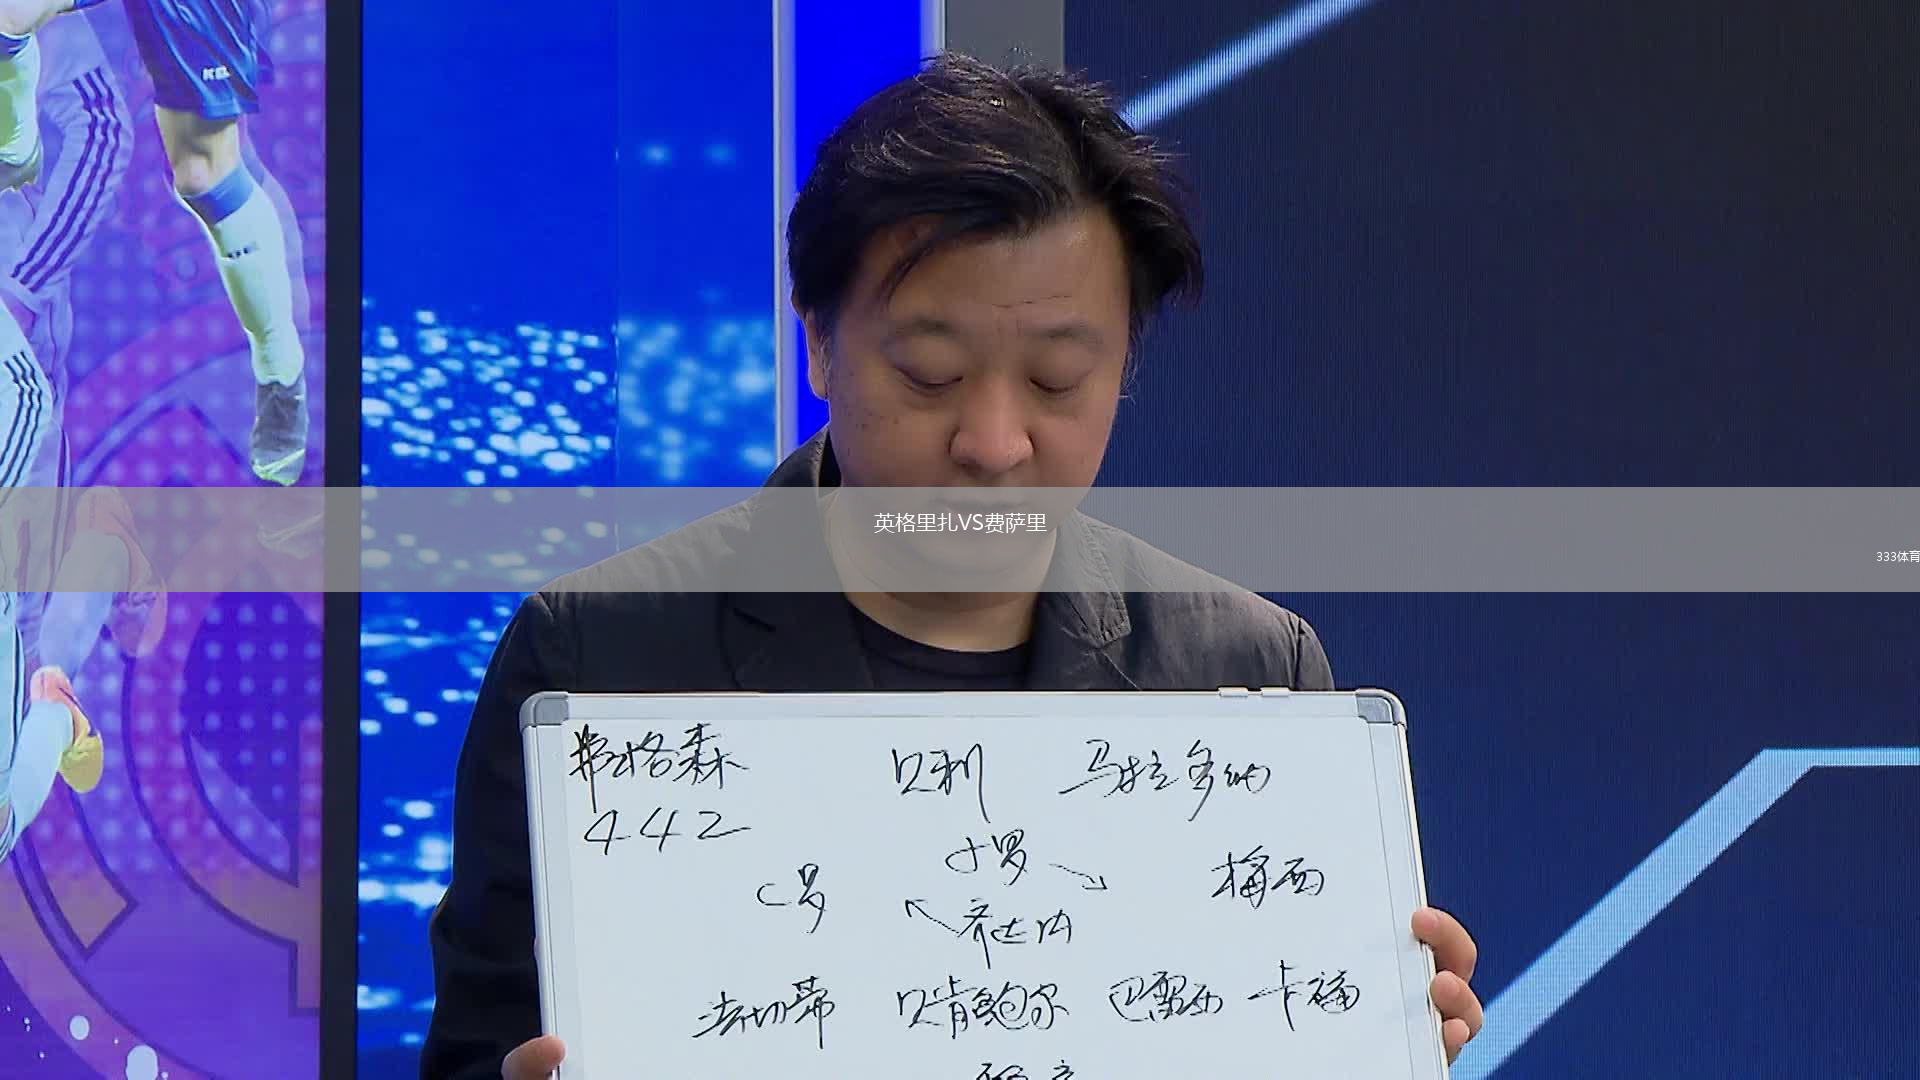 英格里扎VS费萨里
333体育
弗格森 贝利 马拉多纳
442
小罗
C罗 梅西
齐达内
法切蒂 贝肯鲍尔 巴雷西 卡福